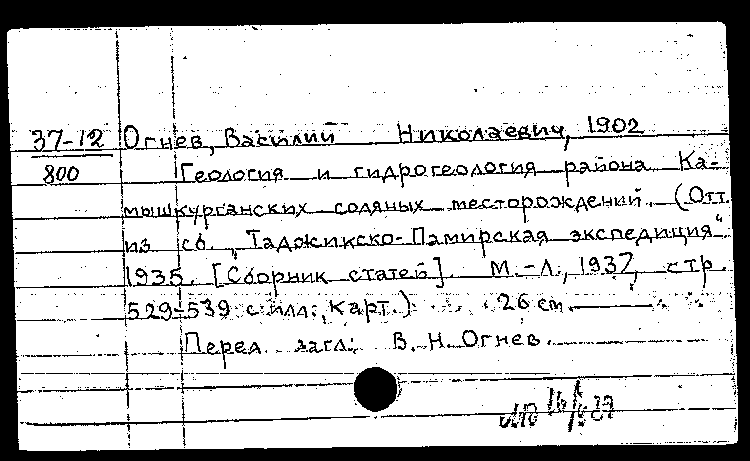 37-12 Огнев, Василий Николаевич, 1902
800 Геология и гидрогеология района Ка-
мышкурганских соляных месторождений. (Отт.
из сб. "Таджикско-Памирская экспедиция".
1935. [Сборник статей]. М.-Л., 1937, стр.
529-539 с илл; карт.) 26 см.
Перед загл: В. Н. Огнев.